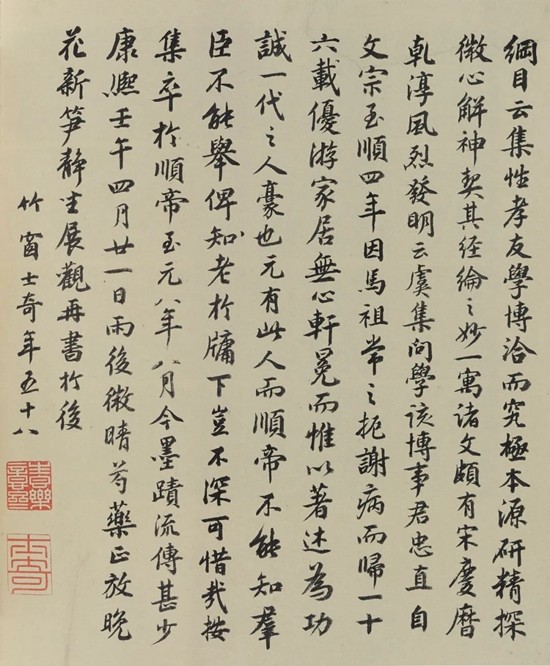 綱目云集性孝友學博洽而究極本源研精探
微心解神契其經綸之妙一寓諸文頗有宋慶曆
乹淳風烈發明云虞集問學該博事君忠直自
文宗至順四年因馬祖常之扼謝病而歸一十
六載優游家居無心軒冕而惟以著述為功
誠一代之人豪也元有此人而順帝不能知羣
臣不能舉俾知老於牖下豈不深可惜哉按
集卒於順帝至元八年八月今墨蹟流傳甚少
康熙壬午四月廿一日雨後微晴芍藥正放晚
花新笋静坐展觀再書於後
竹窗士奇年五十八
士奇